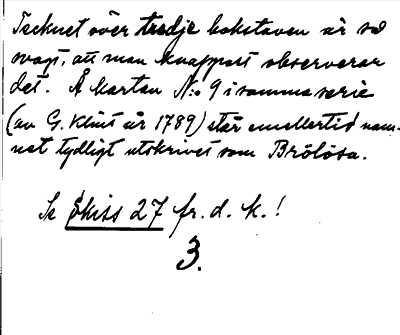 Tecknet över tredje bokstaven är så
svagt, att man knappast observerar
det. Å kartan N:o 9 i samma serie
(av G. Klint år 1789) står emellertid nam-
net tydligt utskrivet som Brölösa.
Se Skiss 27 fr. d. k.!
3.